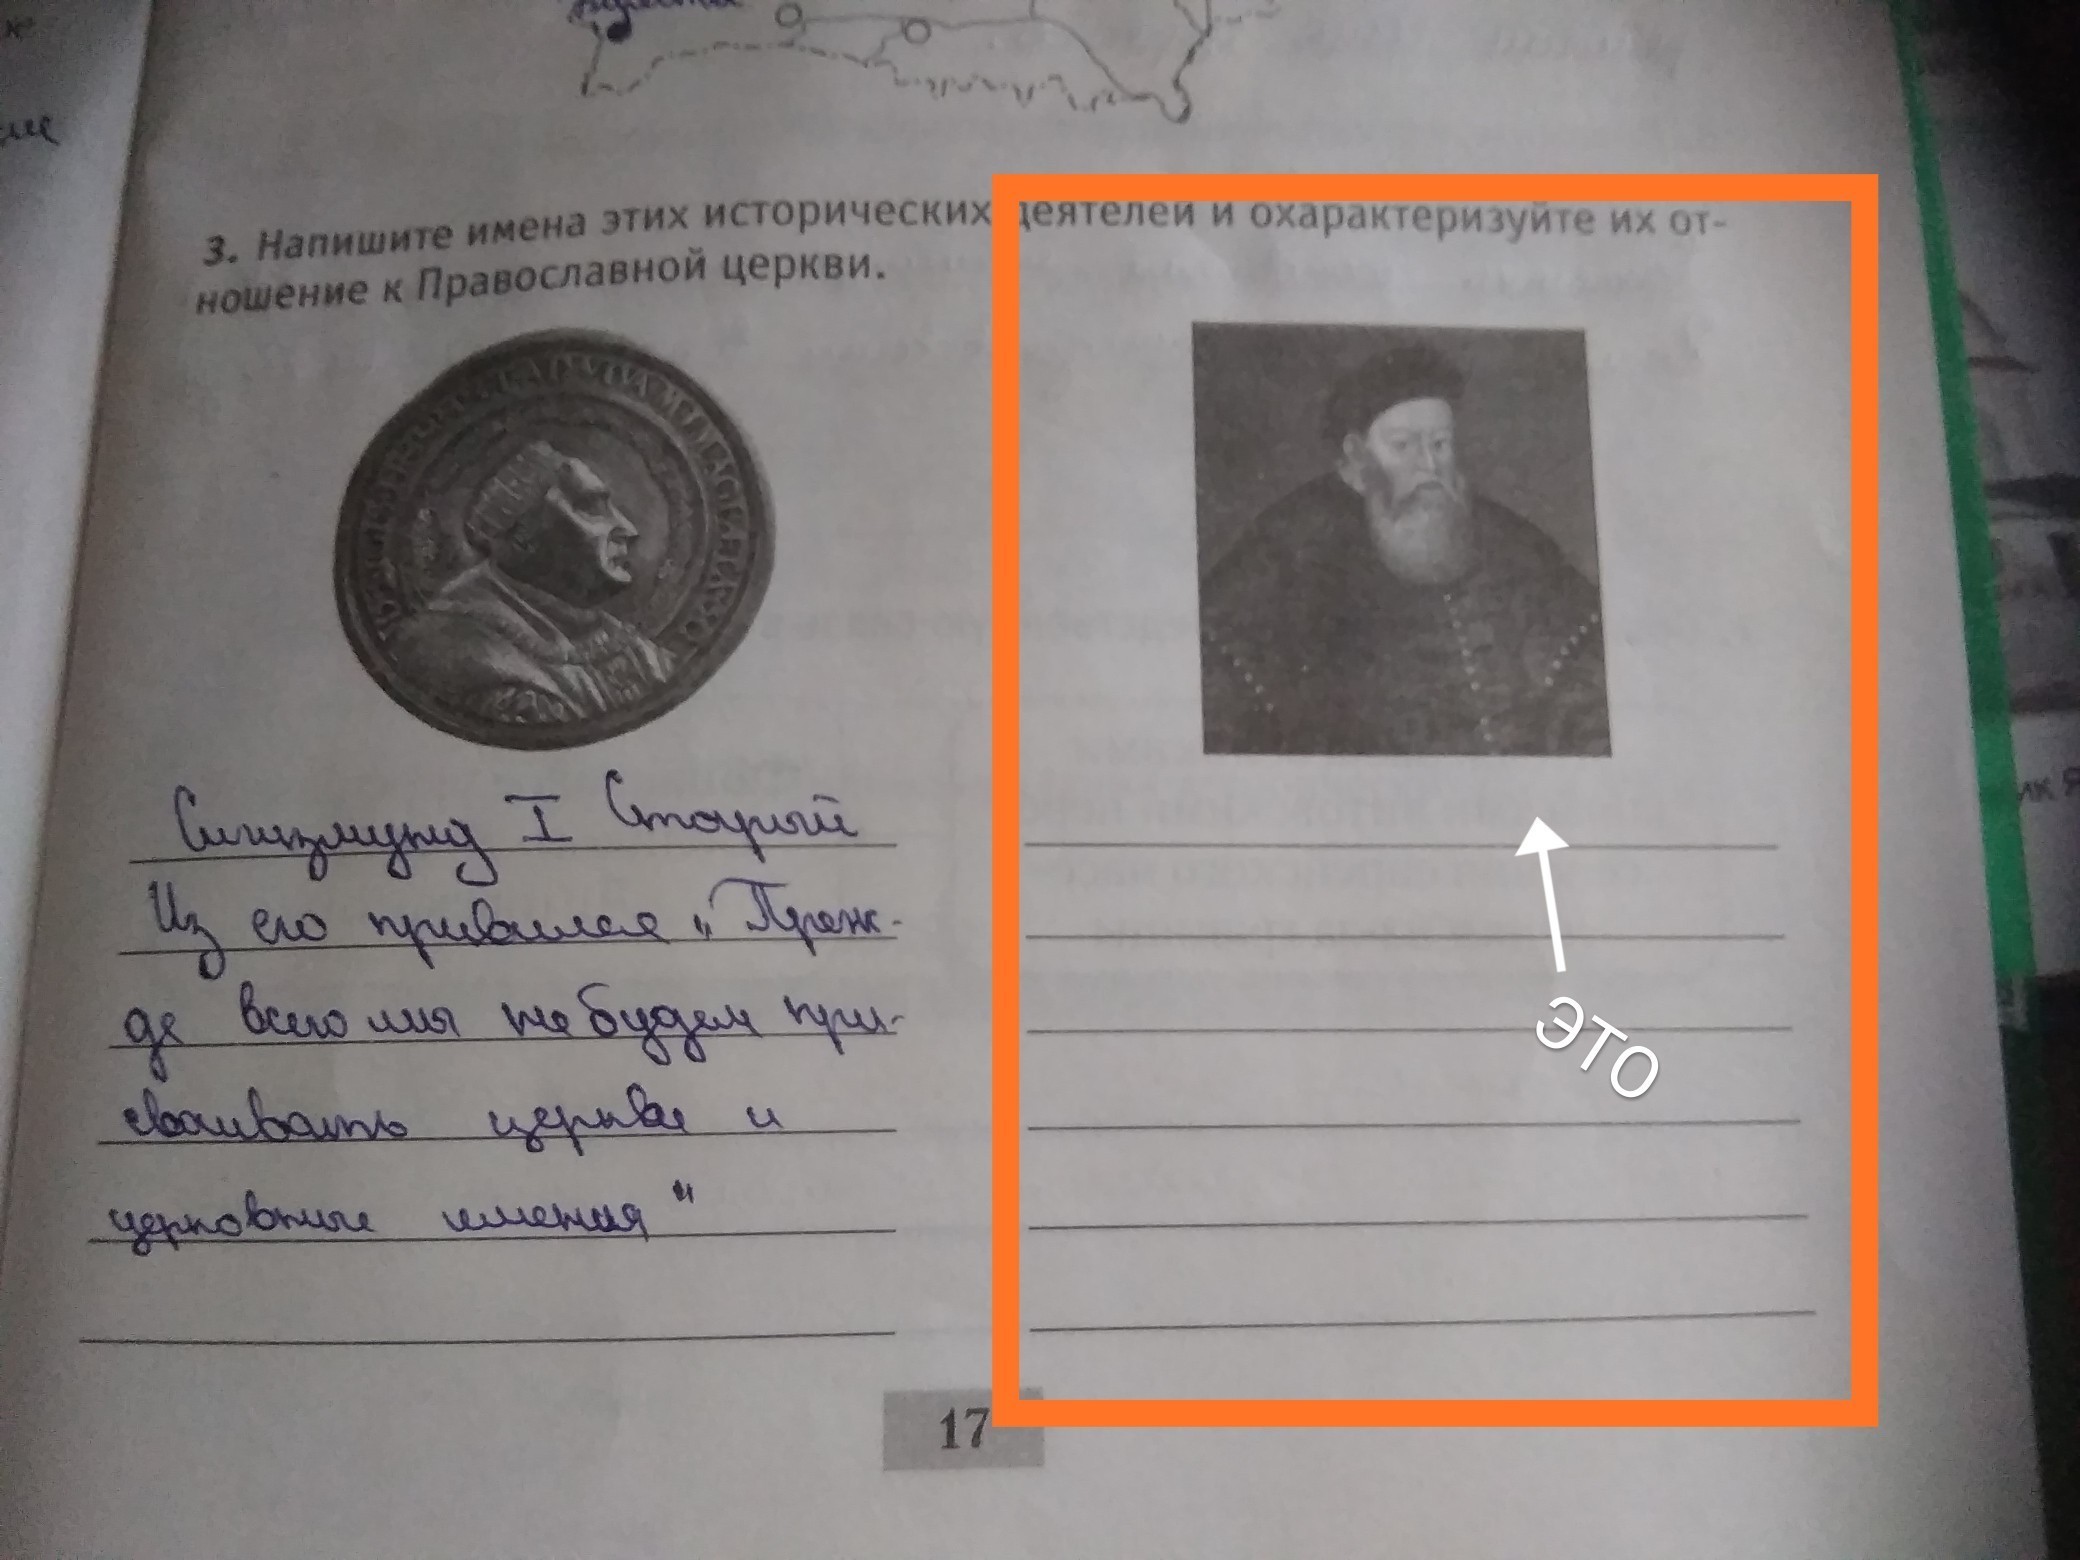 3. Напишите имена этих исторических деятелей и охарактеризуйте их от-
ношение к Православной церкви.
Сигизмунд I Старый
Из его привилея „Преж-
де всего мы не будем при-
сваивать церкви и
церковные имения"
ЭТО
17